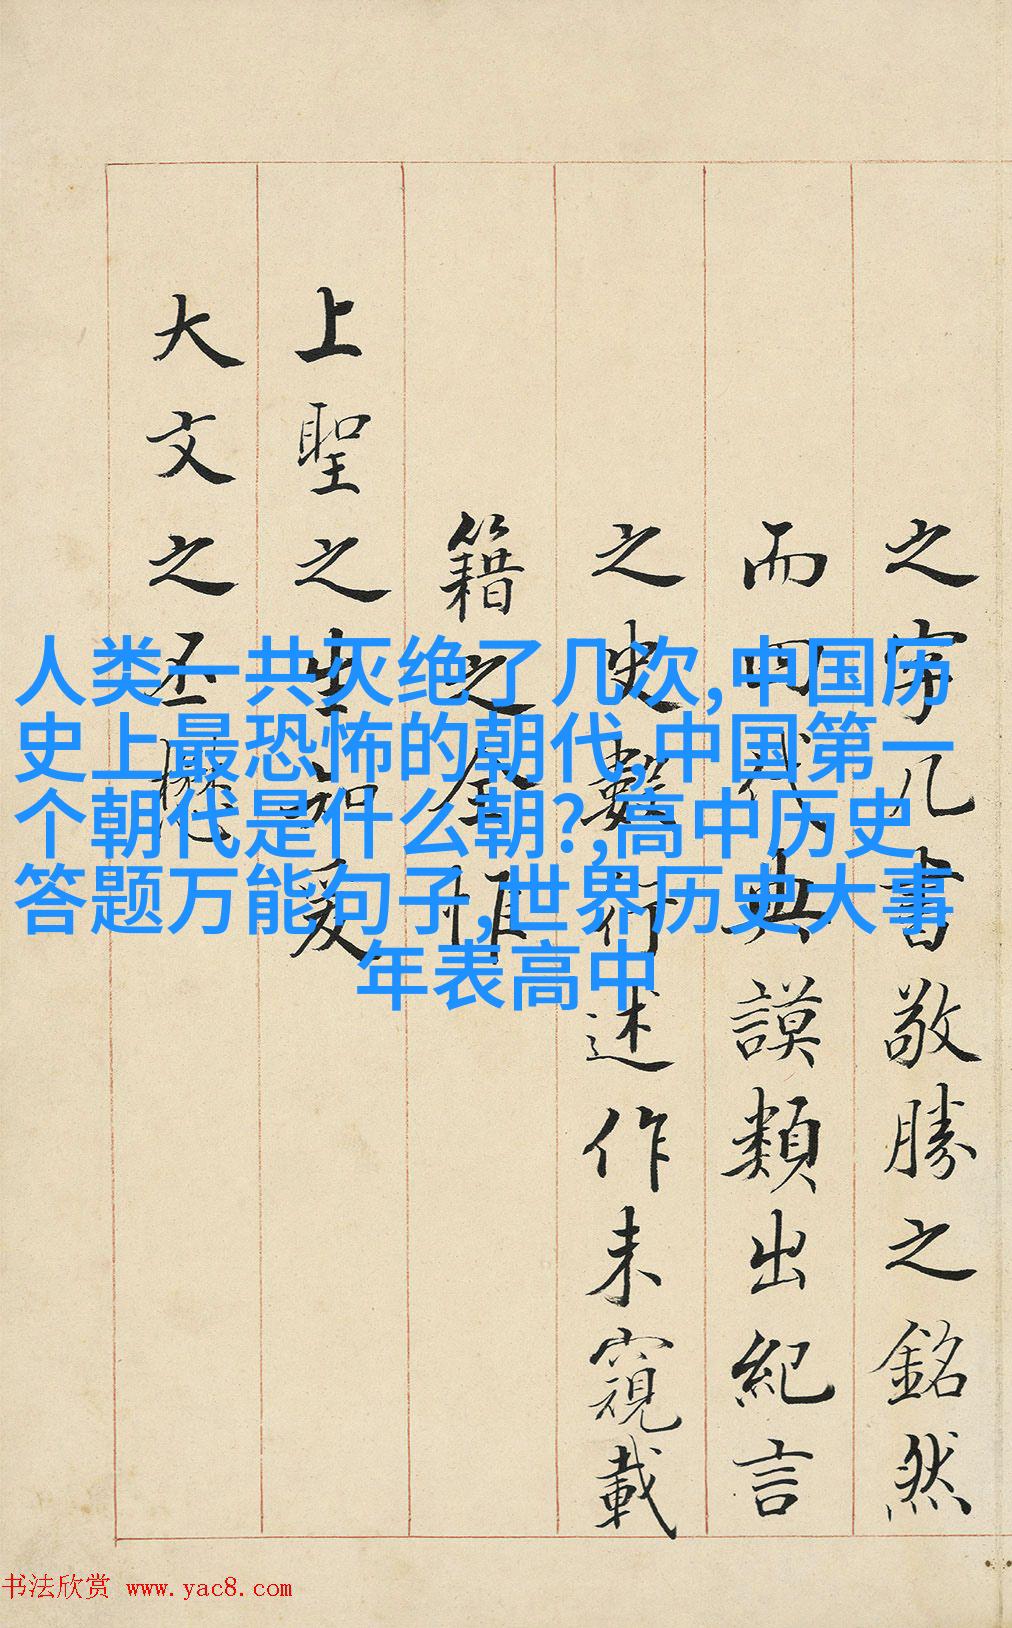 之几書敬勝之銘然
而四代典謨類出紀言
之史數述作未窺載
籍之全惟
上聖之生知爰
大文之丕
人类一共灭绝了几次,中国历
史上最恐怖的朝代,中国第一
个朝代是什么朝?,高中历史
答题万能句子,世界历史大事
年表高中
书法欣赏 www.yac8.com